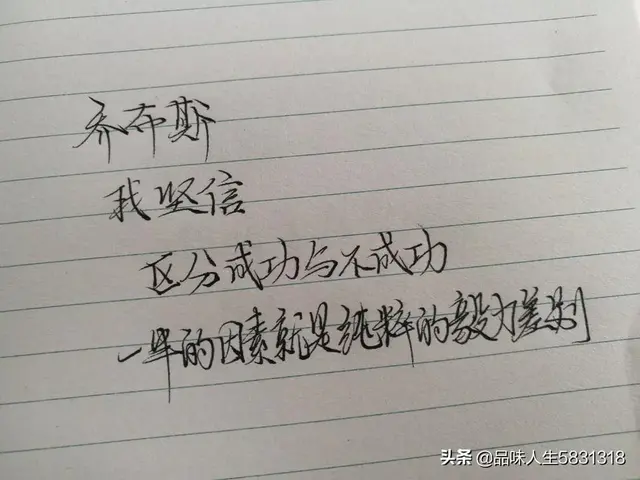 乔布斯
我坚信
区分成功与不成功
一半的因素就是纯粹的毅力差别
头条 @品味人生5831318